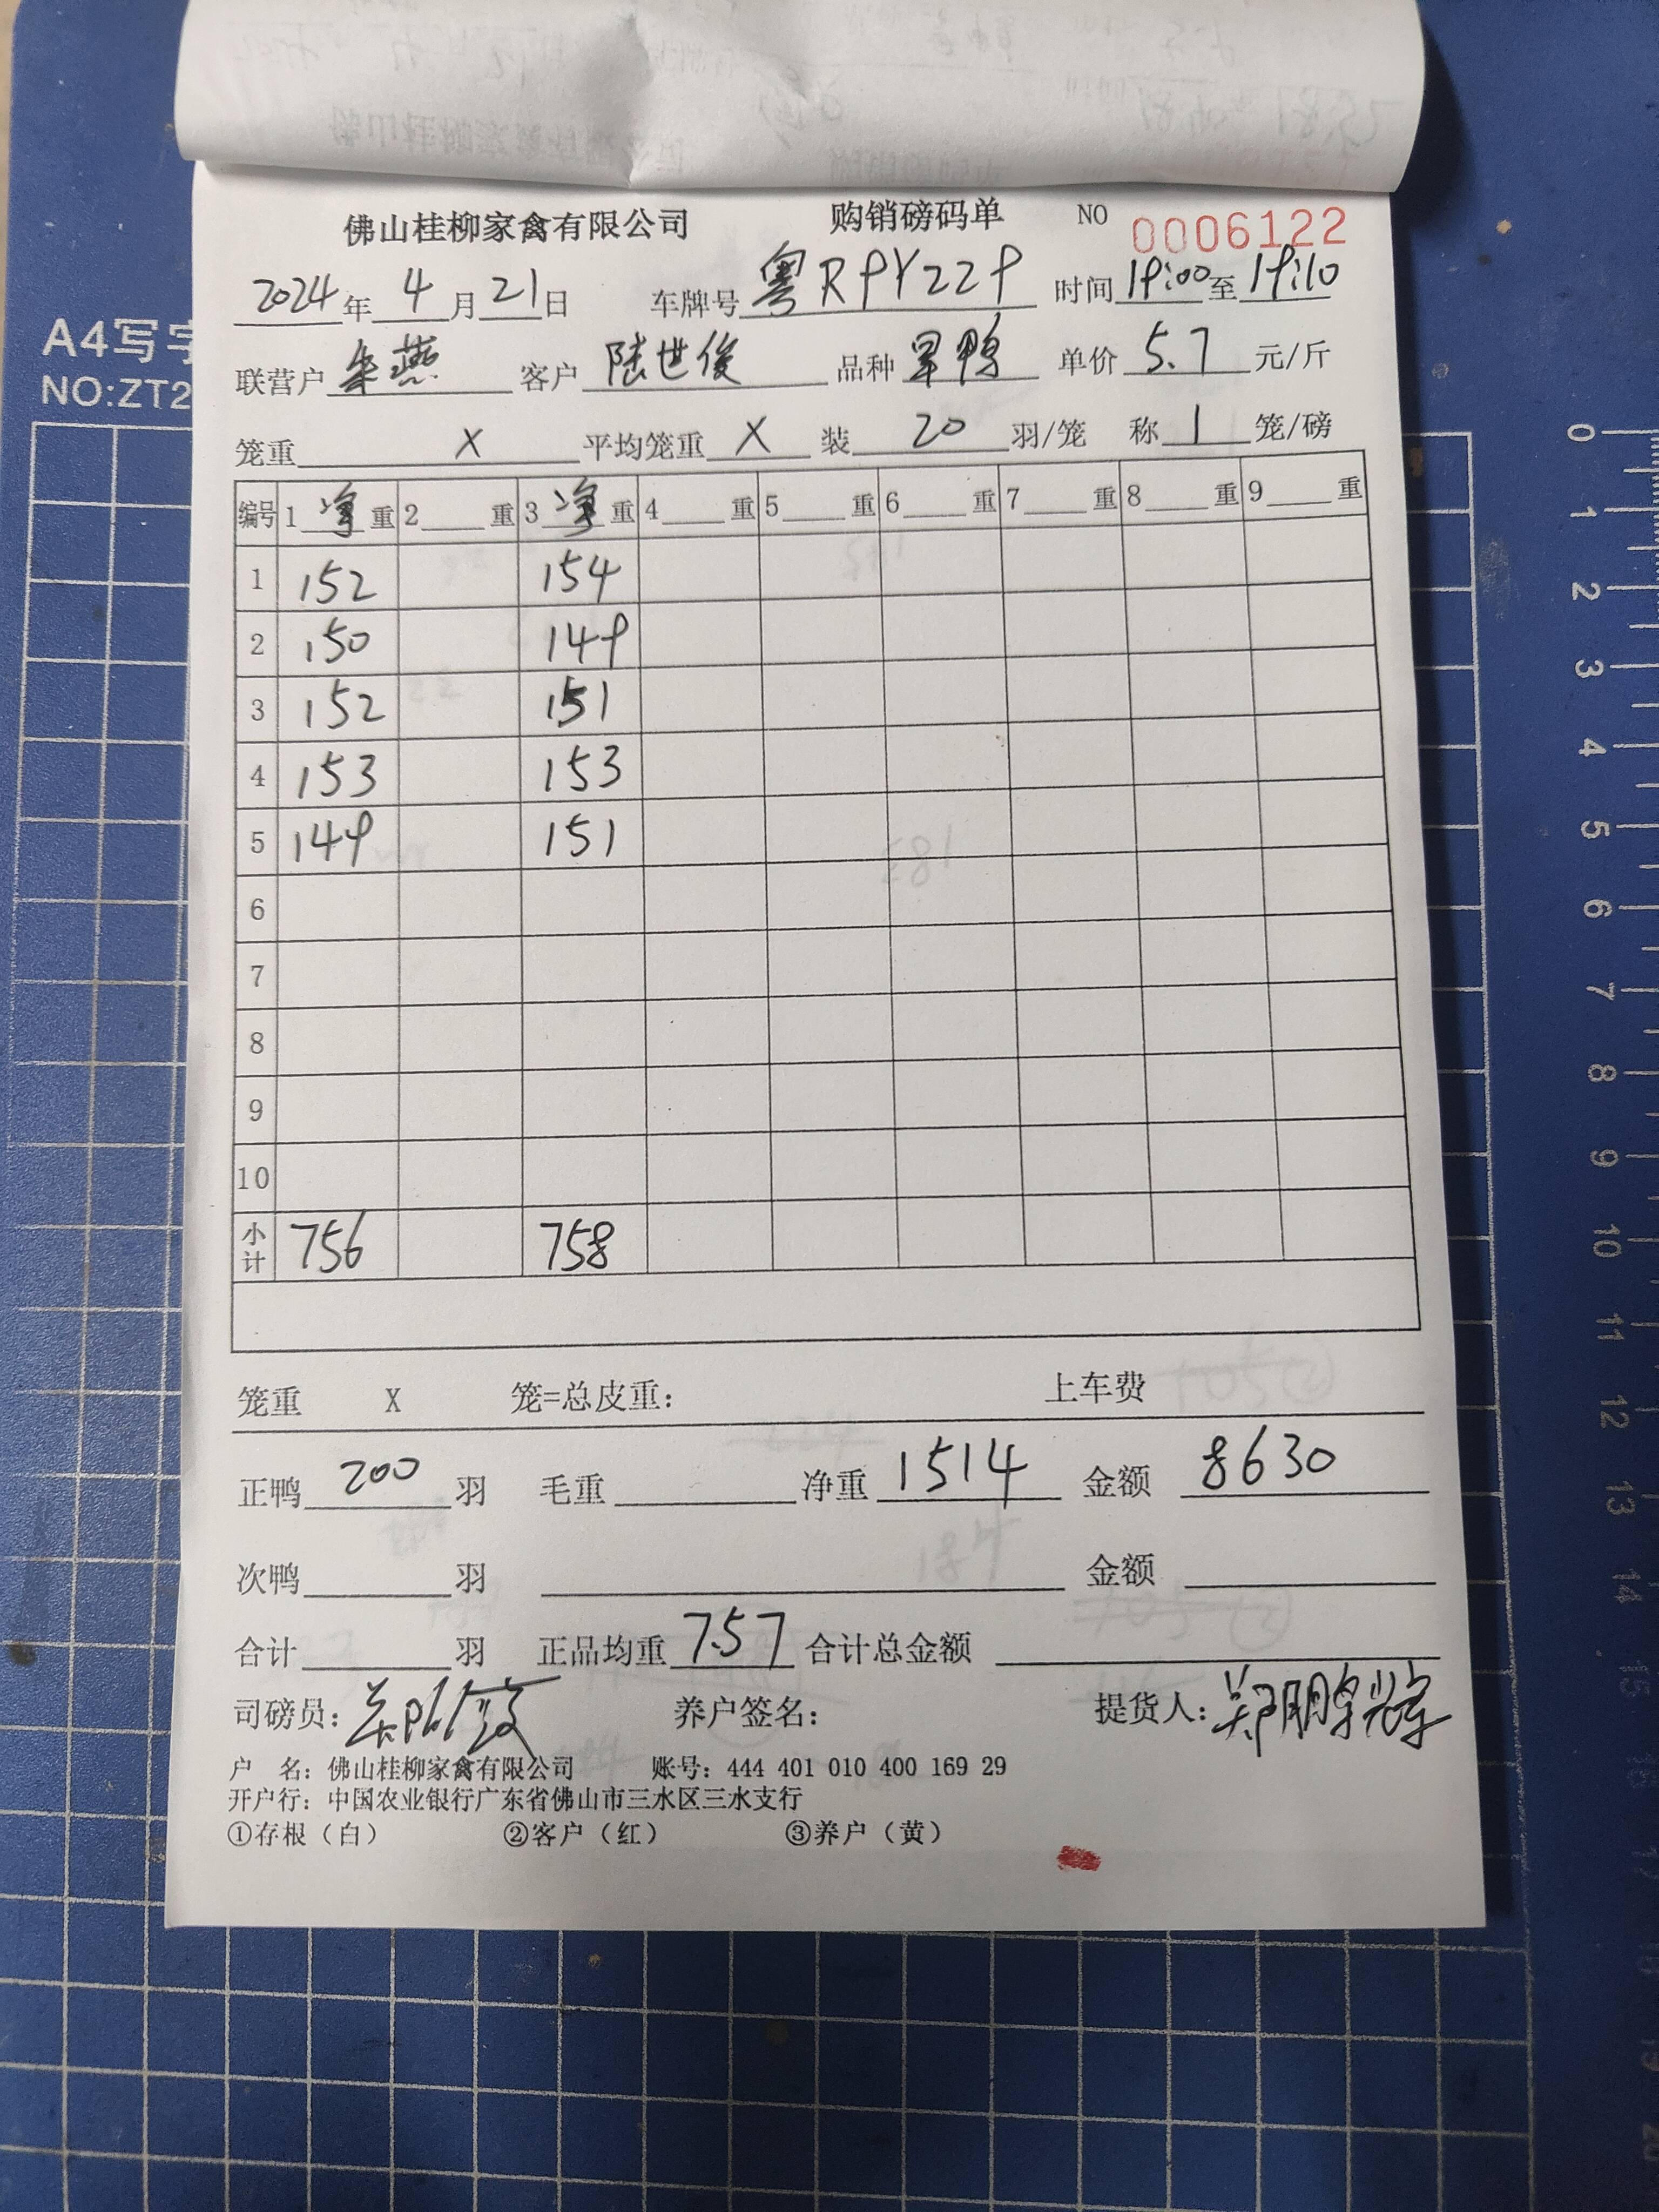 佛山桂柳家禽有限公司 购销磅码单 NO 0006122
2024年4月21日 车牌号 粤R9Y229 时间 19:00至19:10
联营户 朱燕 客户 陆世俊 品种 旱鸭 单价 5.7 元/斤
笼重 X 平均笼重 X 装 20 羽/笼 称 1 笼/磅
编号 1 净 重 2 重 3 净 重 4 重 5 重 6 重 7 重 8 重 9 重
1 152 154
2 150 149
3 152 151
4 153 153
5 149 151
6
7
8
9
10
小计 756 758
笼重 X 笼=总皮重: 上车费
正鸭 200 羽 毛重 净重 1514 金额 8630
次鸭 羽 金额
合计 羽 正品均重 7.57 合计总金额
司磅员: 养户签名: 提货人:
户 名: 佛山桂柳家禽有限公司 账号: 444 401 010 400 169 29
开户行: 中国农业银行广东省佛山市三水区三水支行
①存根（白） ②客户（红） ③养户（黄）
A4写字
NO:ZT2
0
1
2
3
4
5
6
7
8
9
10
11
12
13
14
15